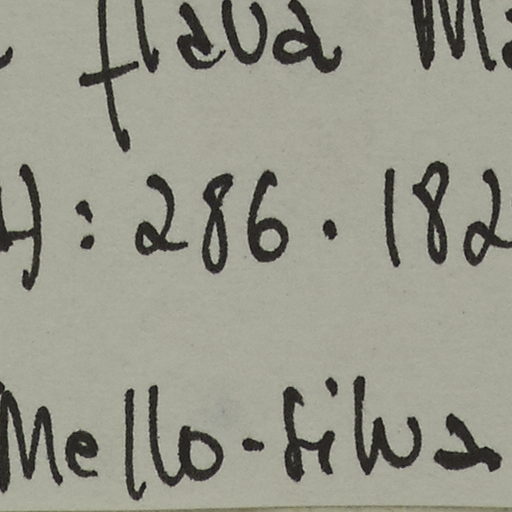 flava Ma
): 286. 182
Mello-Silva